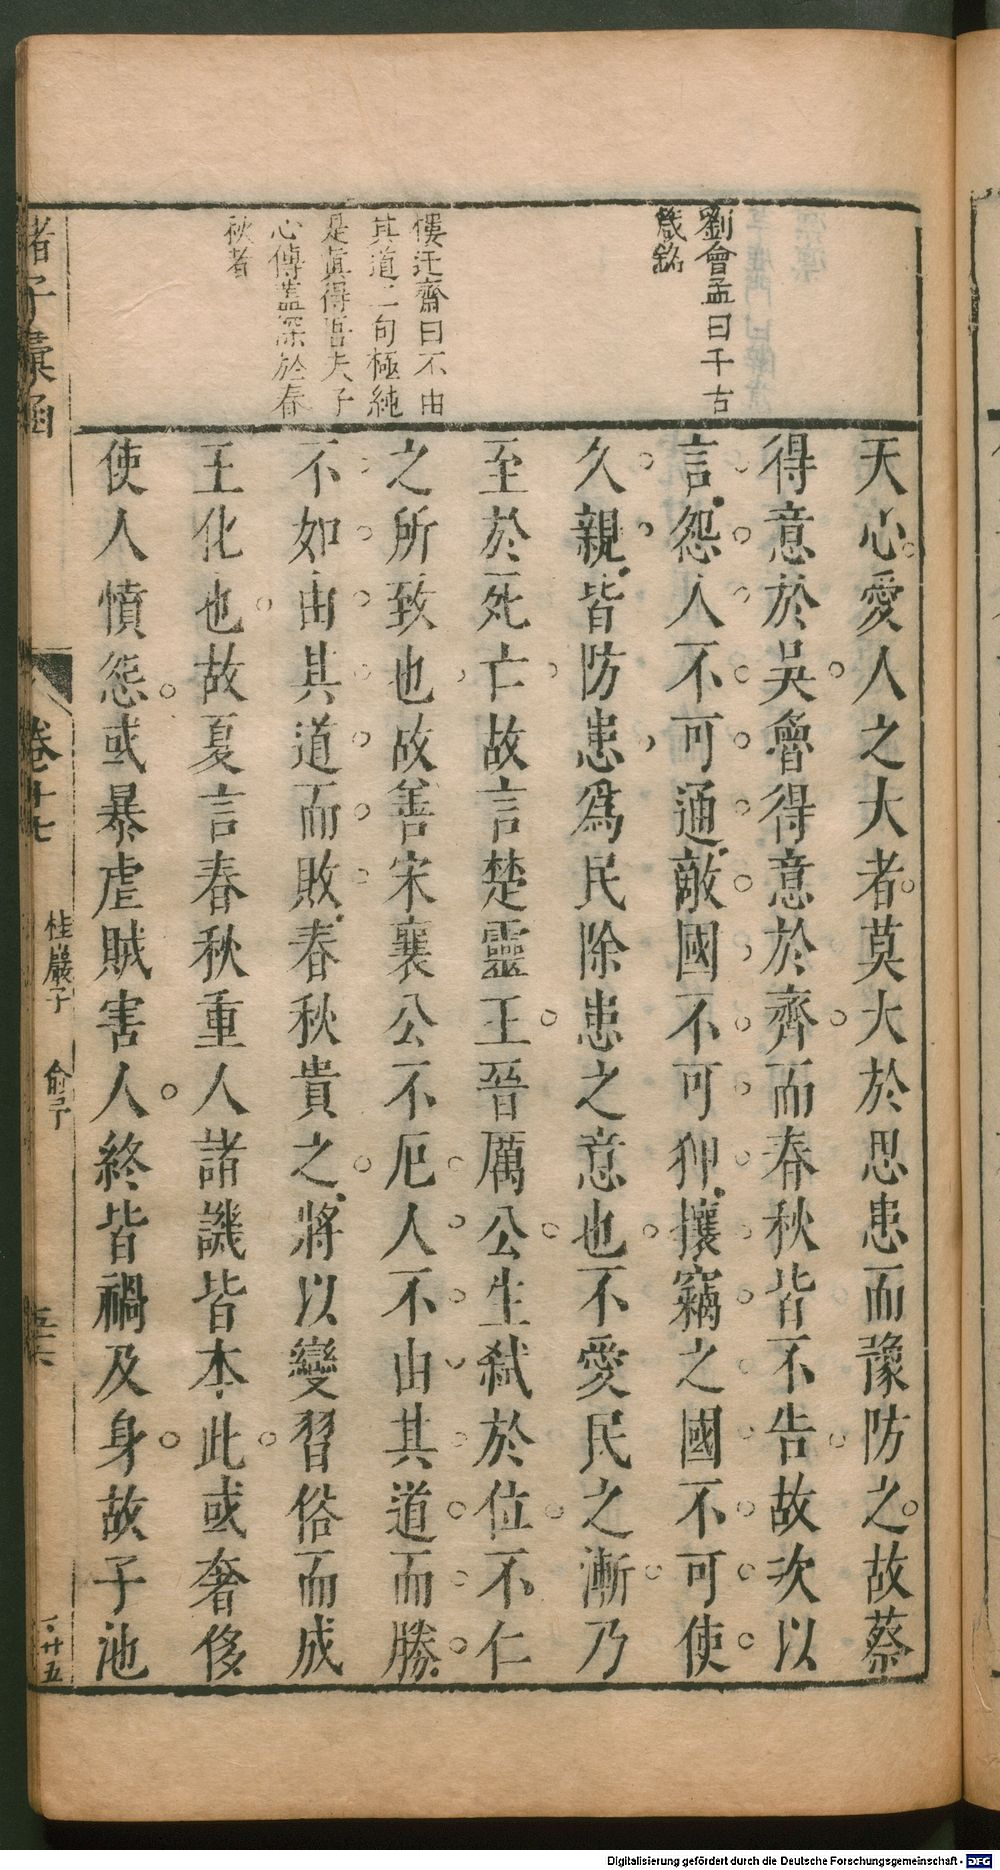 劉會孟曰千古
箴銘
樓迂齋曰不由
其道二句極純
是眞得吾夫子
心傳蓋深於春
秋者
天心愛人之大者莫大於思患而豫防之故蔡
得意於吳魯得意於齊而春秋皆不告故次以
言怨人不可通敵國不可狎攘竊之國不可使
久親皆防患爲民除患之意也不愛民之漸乃
至於死亡故言楚靈王晉厲公生弑於位不仁
之所致也故善宋襄公不厄人不由其道而勝
不如由其道而敗春秋貴之將以變習俗而成
王化也故夏言春秋重人諸譏皆本此或奢侈
使人憤怨或暴虐賊害人終皆禍及身故子池
諸子彙函
卷十七
桂巖子
俞子
廿五
Digitalisierung gefördert durch die Deutsche Forschungsgemeinschaft - DFG